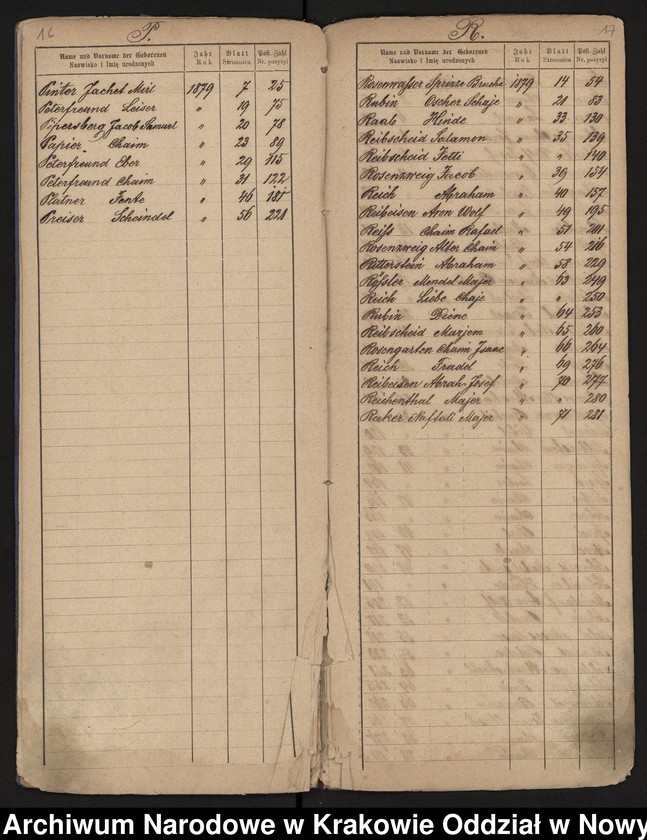 16
P.
Name und Vorname der Geborenen
Nazwisko i Imię urodzonych
Jahr
Rok
Blatt
Stronnica
Post-Zahl
Nr. pozycyi
Pinter Jachet Mirl 1879 7 25
Peterfreund Leiser " 19 75
Pipersberg Jacob Samuel " 20 78
Papier Chaim " 23 89
Peterfreund Ober " 29 115
Peterfreund Chaim " 31 122
Platner Jente " 46 181
Preiser Scheindel " 56 221
17
R.
Name und Vorname der Geborenen
Nazwisko i Imię urodzonych
Jahr
Rok
Blatt
Stronnica
Post-Zahl
Nr. pozycyi
Rosenwasser Sprinze Bruche 1879 14 54
Rubin Oscher Schaje " 21 83
Raab Hinde " 33 130
Reibscheid Salamon " 35 139
Reibscheid Fetti " " 140
Rosenzweig Jacob " 39 154
Reich Abraham " 40 157
Reibeisen Aron Wolf " 49 195
Reiss Chaim Rafael " 51 201
Rosenzweig Alter Chaim " 54 216
Ritterstein Abraham " 58 229
Rössler Mendel Majer " 63 249
Reich Liebe Chaje " " 250
Rubin Diene " 64 253
Reibscheid Marjem " 65 260
Rosengarten Chaim Isaac " 66 264
Reich Fradel " 69 276
Reibeisen Abrah. Josef " 70 277
Reichenthal Majer " " 280
Reiker Naftali Majer " 71 281
Archiwum Narodowe w Krakowie Oddział w Nowy